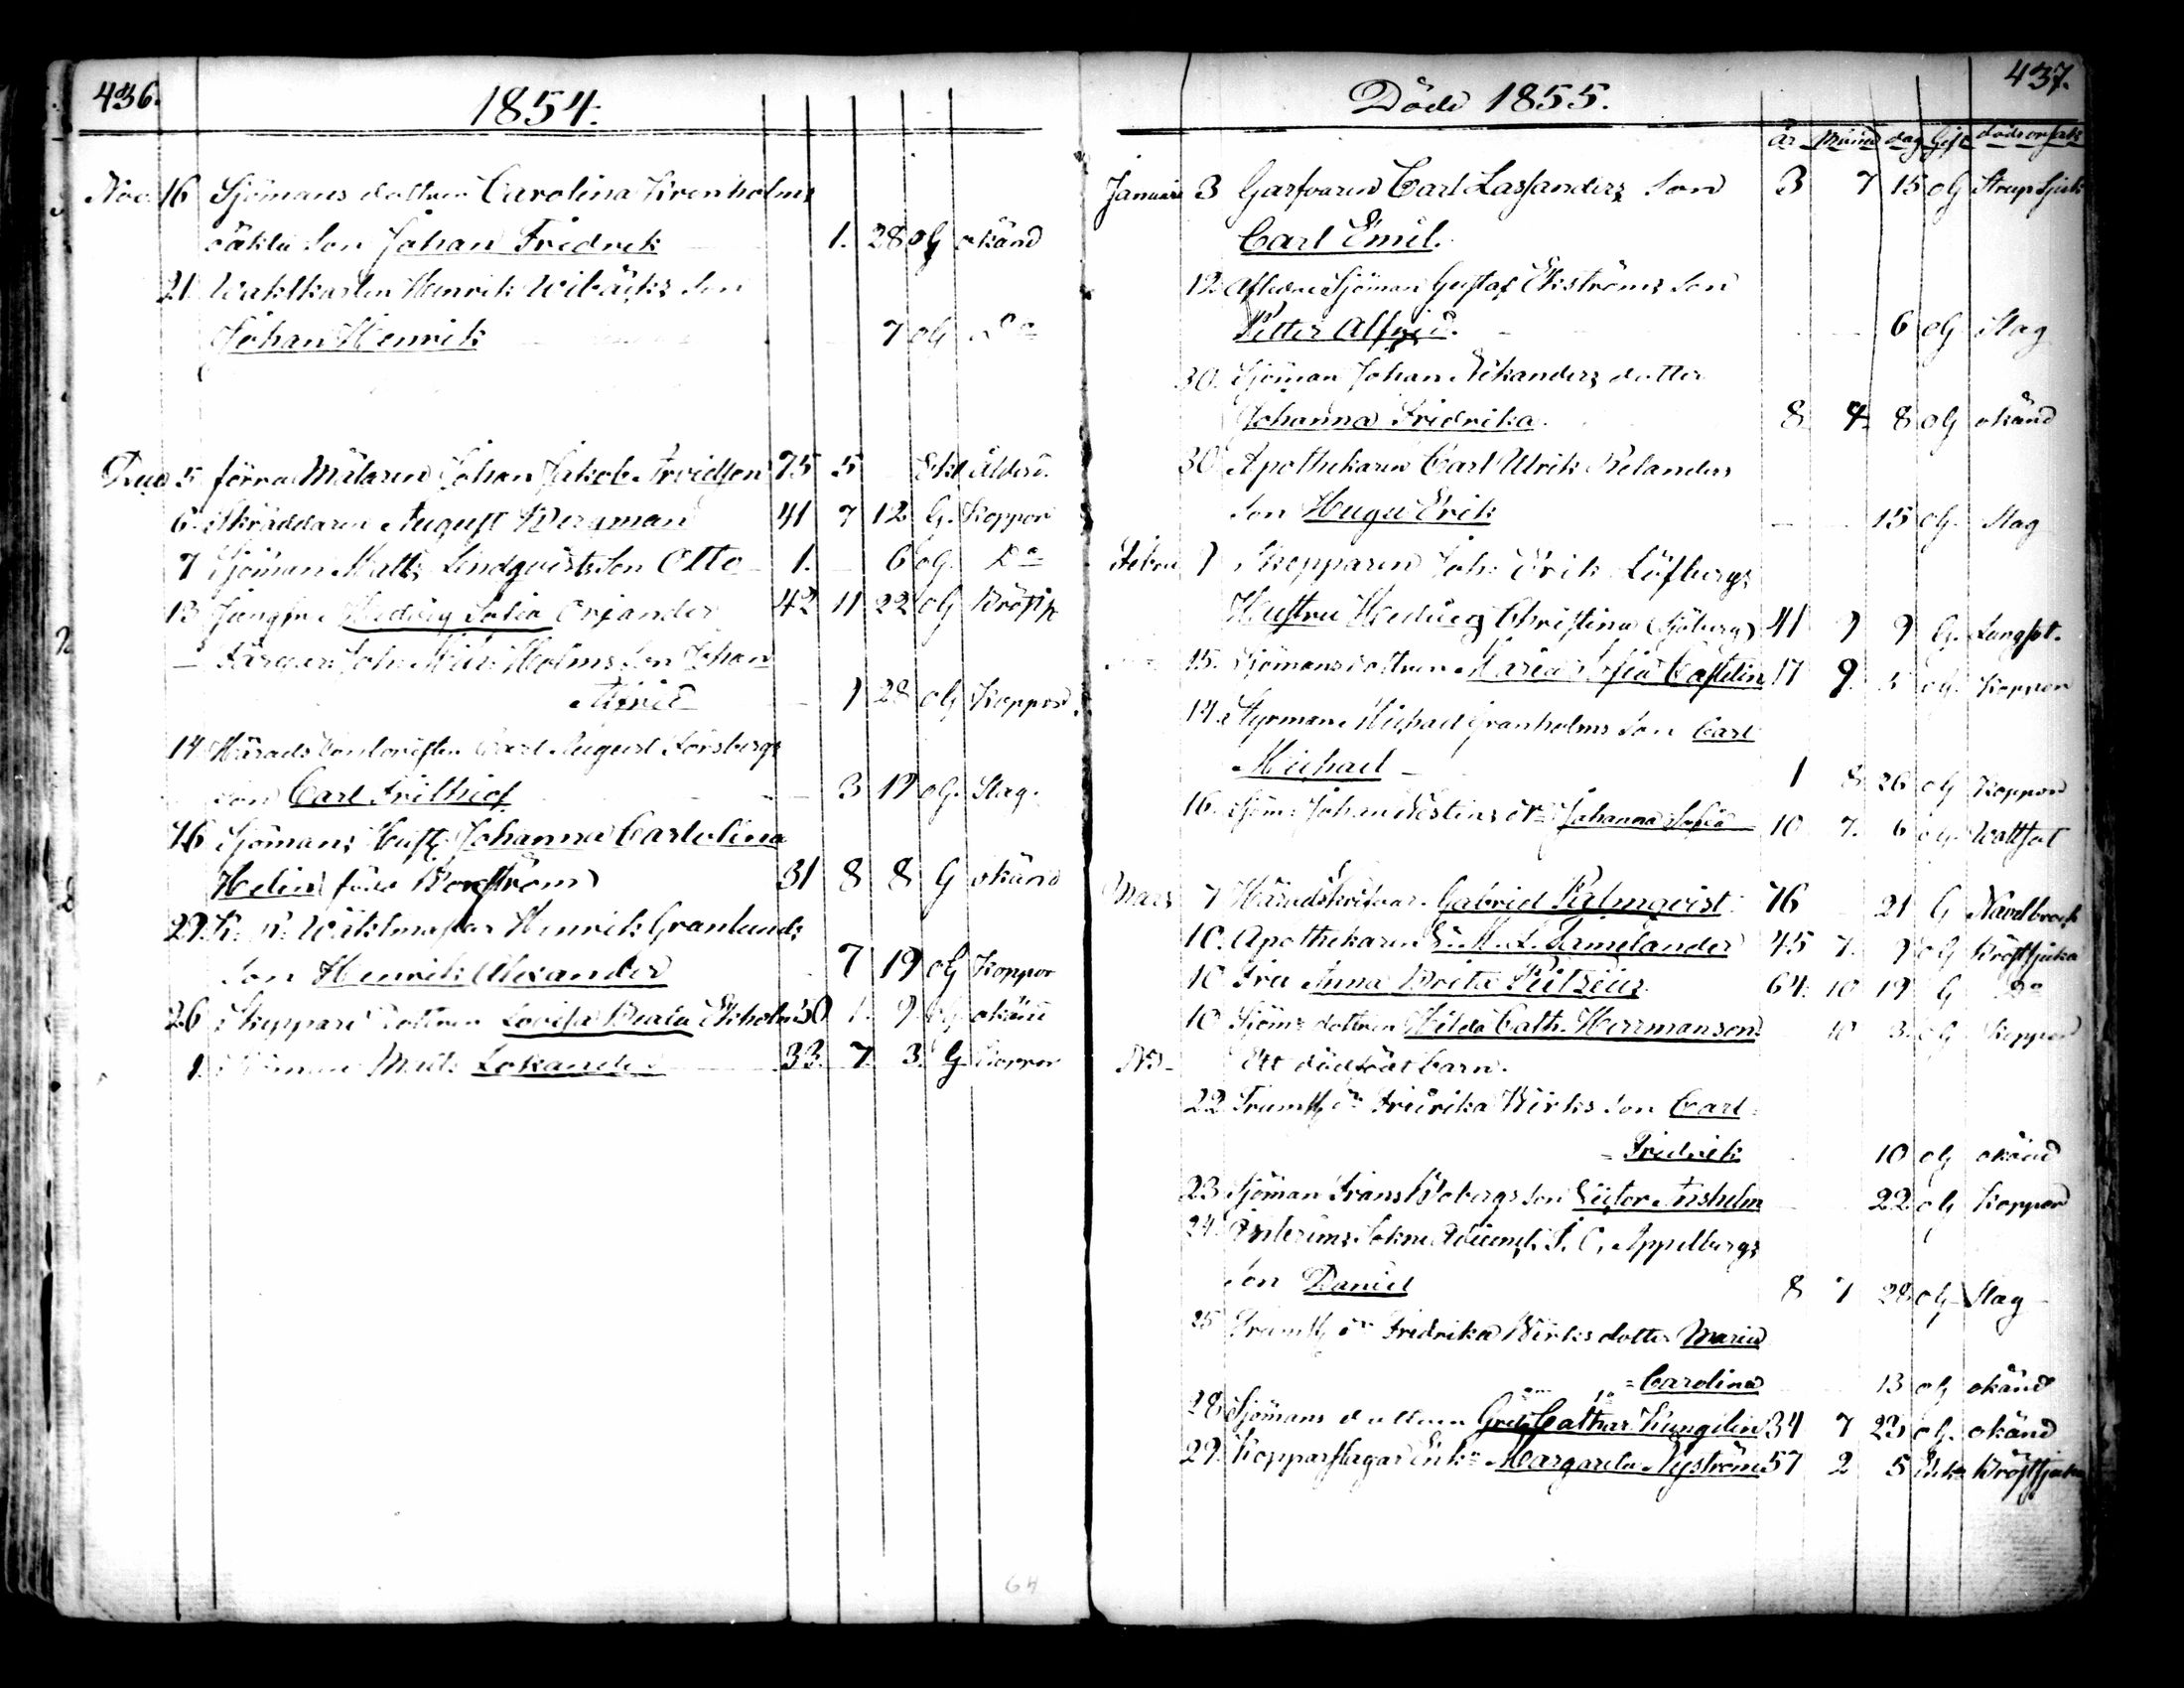 436.
1854.
Nov. 16 Sjömans dottren Carolina Krenholms
oäkta Son Johan Fredrik 1. 28 oG okänd
21 Waktkarlen Henrik Wibäcks Son
Johan Henrik 7 oG Do
Dec. 5 förra Målaren Johan Jakob Arvidson 75 5 Enkl. Ålderd.
6. Skräddaren August Bergman 41 7 12 G. Koppor
7 Sjöman Matts Lindqvists Son Otto 1. 6 oG. Do
13 Jungfru Hedvig Sofia Orjander 42 11 22 oG Bröstsj.
Holms Son Johan
1 28 oG Koppor
14 Härads Carl August Forsbergs
son Carl Frithiof 3 19 oG. Slag.
16 Sjömans Hustr. Johanna Carolina
Helin född Borgström 31 8 8 G okänd
Henrik Granlunds
Son Henrik Alexander 7 19 oG Koppor
26 Skeppare dottren Lovisa Beata Ekholm 30 1. 9 oG okänd
1. Sjöman Matts Lokander 33. 7. 3. G Koppor
64
437.
Döde 1855.
År Månad dag Gift dödsorsak
Januari 3 Garfvaren Carl Lassanders Son 3 7 15 oG Strupsjuk
Carl Emil.
12 Afledne Sjöman Gustaf Ekströms Son
Petter Alfrid. 6 oG Slag
30. Sjöman Johan Nikanders dotter
Johanna Fridrika. 8 4 8 oG okänd
30 Apothekaren Carl Ulrik Relanders
Son Hugo Erik 15 oG. Slag
Febru 7 Skepparen Joh: Erik Löfbergs
Hustru Hedvig Christina (Sjöberg) 41 9 9 G. Lungsot.
15. Sjömansdottren Maria Sofia Castelin 17 9. 5 oG. Koppor
14. Styrman Michael Granholms Son Carl
Michael 1 8 26 oG Koppor
16. Sjöm: Johan Johanna Sofia 10 7. 6 oG. Wattsot
Mars 7 Häradskrifvar. Gabriel Palmqvist. 76 21 G Navelbrock
10. Apothekaren 45 7. 9 oG Bröstsjuka
10 Fru Anna Brita 64. 10 19 G Do
10 Sjöms dottren Hilda Cath. Herrmanson. 10 3. oG Koppor
No. Ett dödfödt barn.
22 Fridrika Wirks Son Carl
= Fredrik 10 oG okänd
23 Sjöman Frans Bobergs Son Victor Anshelm 22 oG Koppor
24. Interims Sokne Adjunct. J. C. Appelbergs
Son Daniel 8 7 28 oG Slag
25 Fridrika Wirks dotter Maria
= Carolina 13 oG okänd
28 Sjömans dottren Greta Cathar. Kungelin 34 7 23 oG. okänd
29. Kopparslagar Enk: Margareta Nyström 57 2 5 Enk. Bröstsjuka